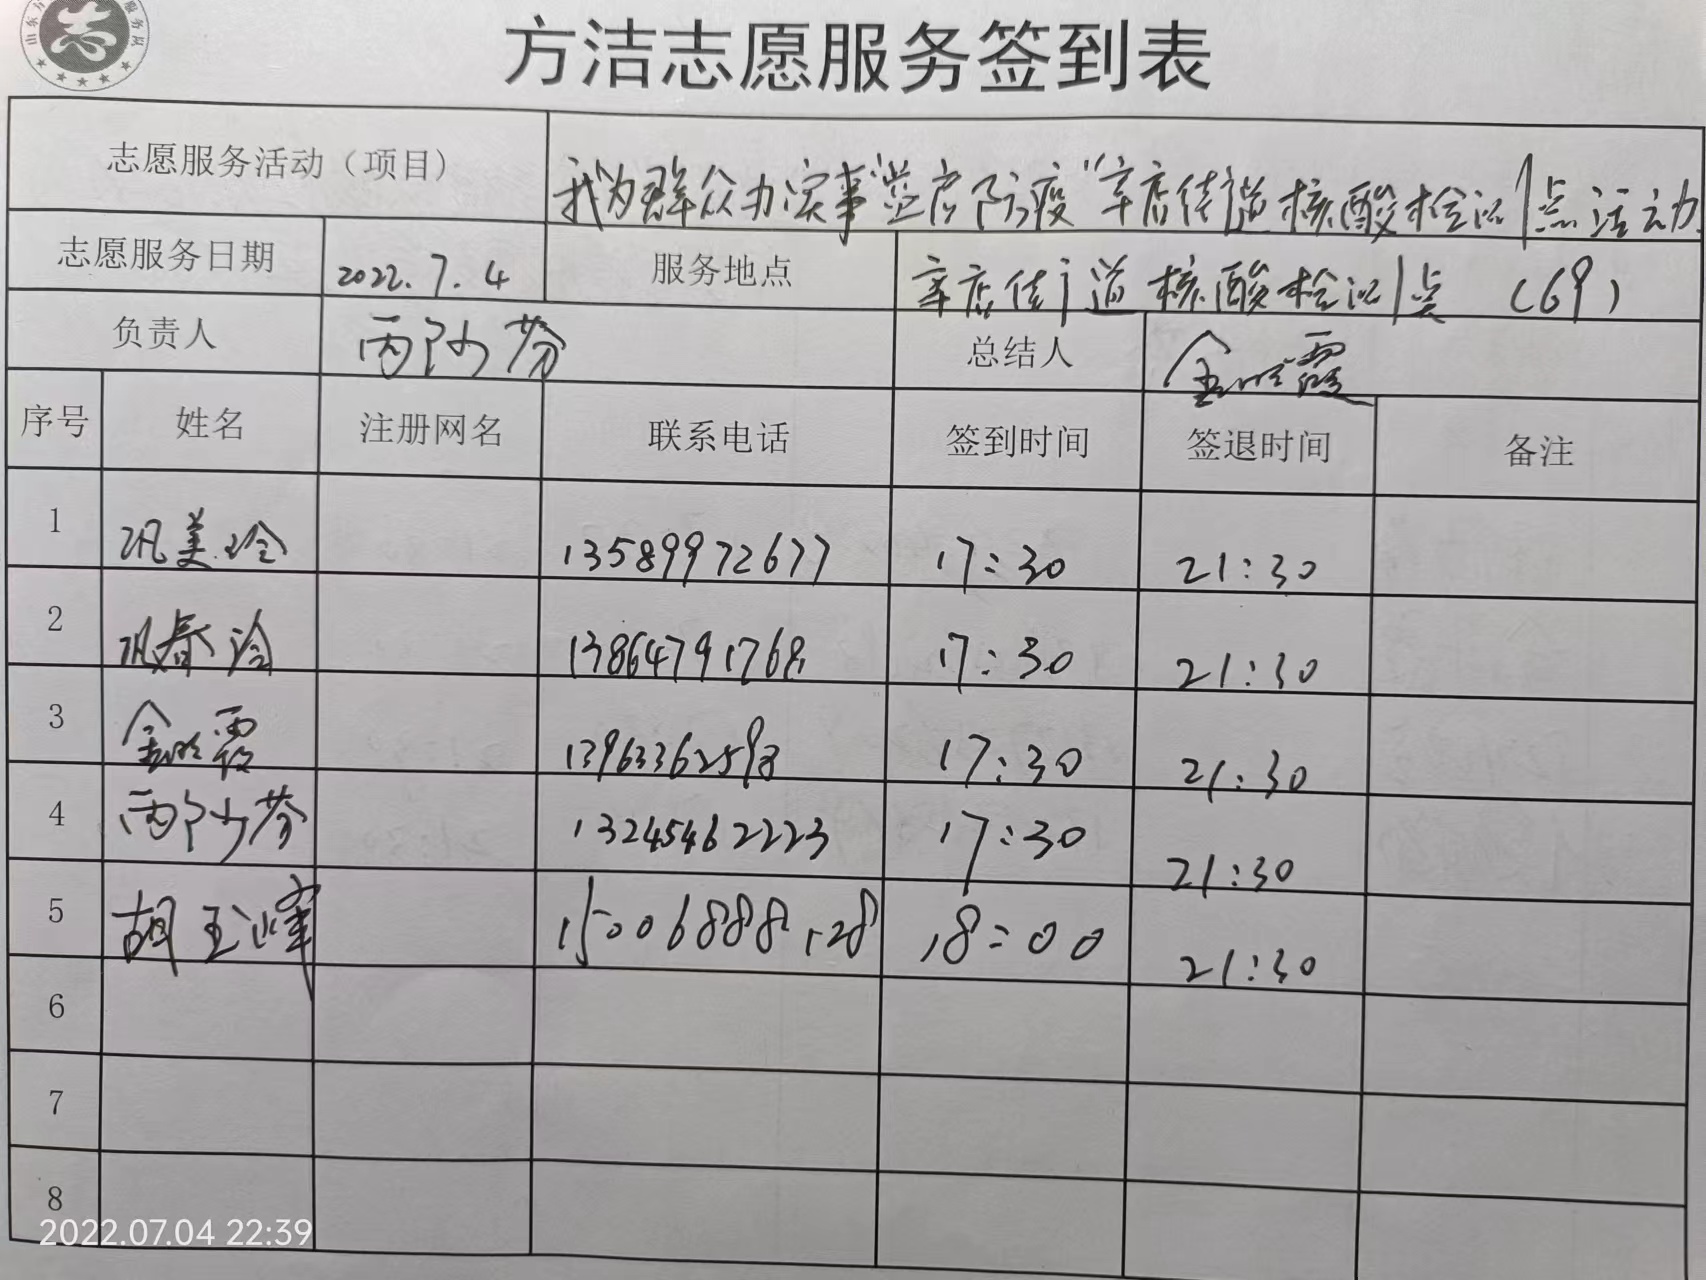 方洁志愿服务签到表
志愿服务活动（项目） 我为群众办实事"益启防疫"辛店街道核酸检测点活动
志愿服务日期 2022.7.4 服务地点 辛店街道核酸检测点（69）
负责人 总结人 金晓霞
序号 姓名 注册网名 联系电话 签到时间 签退时间 备注
1 巩美玲 13589972677 17:30 21:30
2 巩春玲 13864791768 17:30 21:30
3 金晓霞 13963362593 17:30 21:30
4 13245462223 17:30 21:30
5 胡玉峰 15006888128 18:00 21:30
6
7
8
2022.07.04 22:39